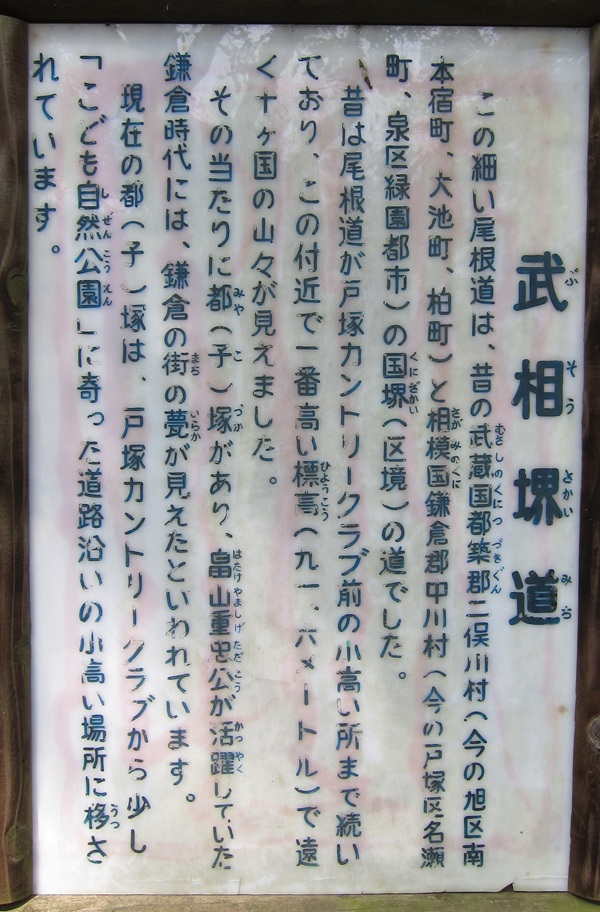 武相堺道
この細い尾根道は、昔の武蔵国都築郡二俣川村（今の旭区南
本宿町、大池町、柏町）と相模国鎌倉郡中川村（今の戸塚区名瀬
町、泉区緑園都市）の国堺（区境）の道でした。
昔は尾根道が戸塚カントリークラブ前の小高い所まで続い
ており、この付近で一番高い標高（九一、六メートル）で遠
く十ヶ国の山々が見えました。
その当たりに都（子）塚があり、畠山重忠公が活躍していた
鎌倉時代には、鎌倉の街の甍が見えたといわれています。
現在の都（子）塚は、戸塚カントリークラブから少し
「こども自然公園」に寄った道路沿いの小高い場所に移さ
れています。